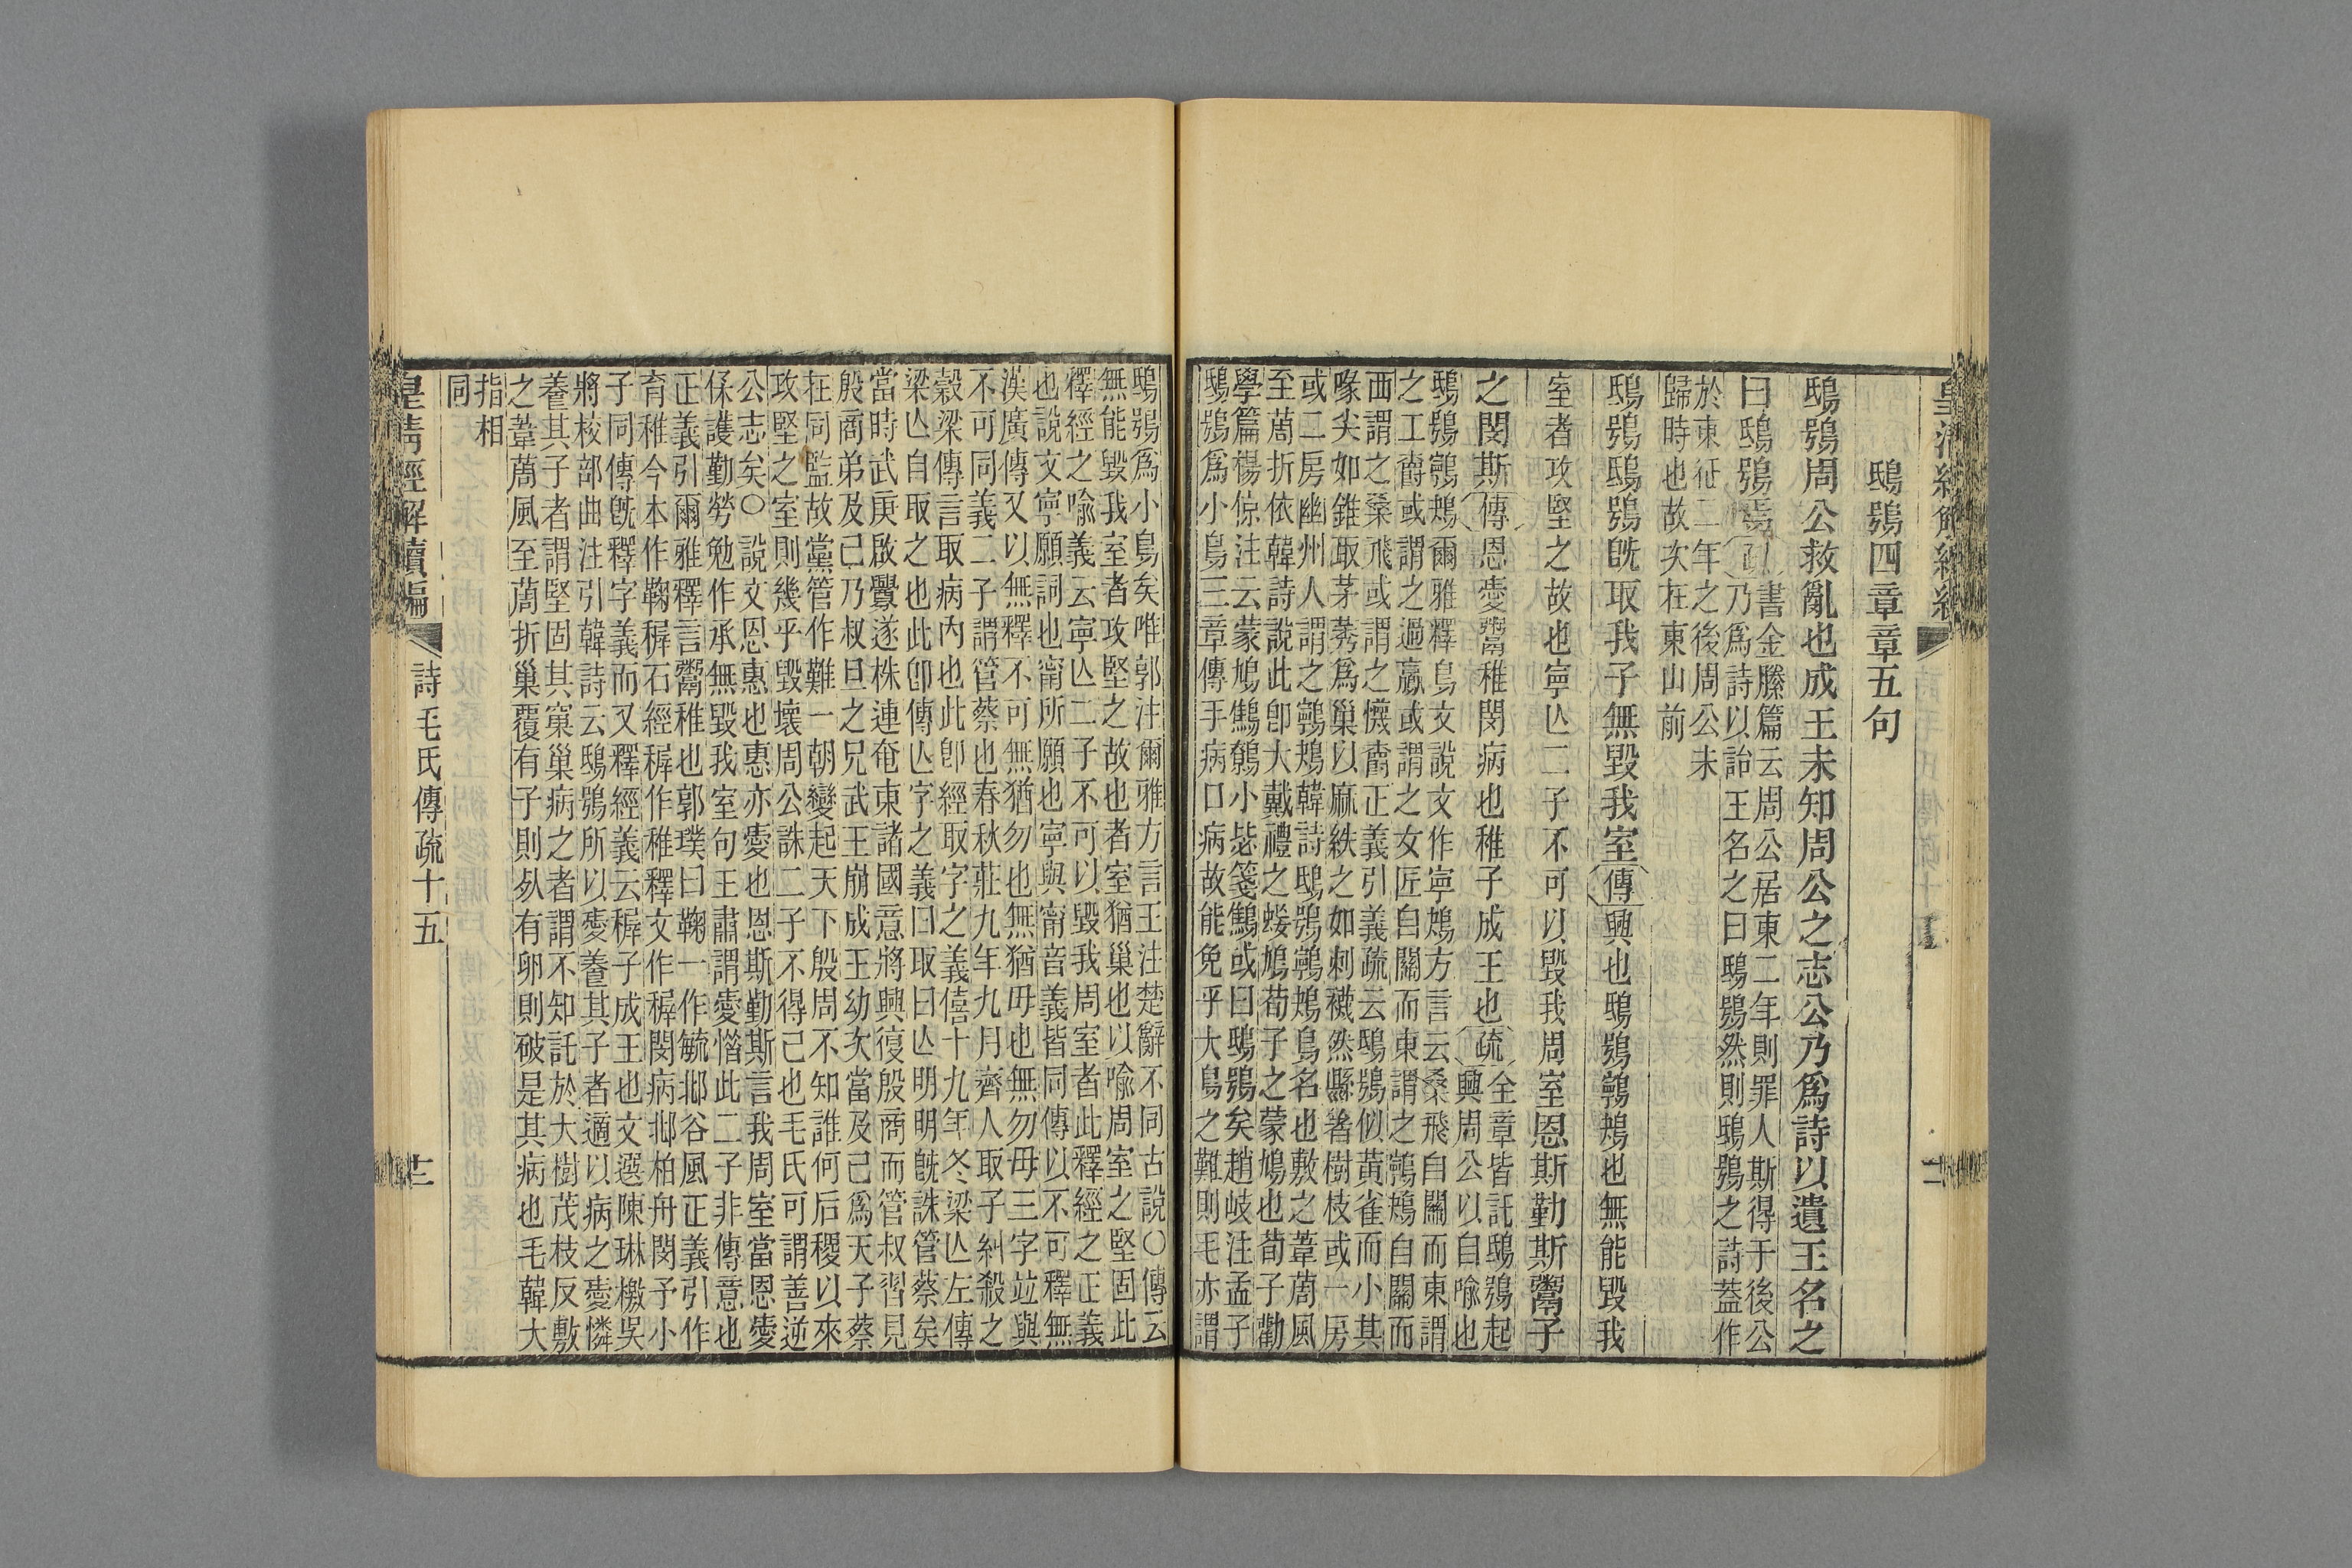 皇清經解續編
鴟鴞四章章五句
鴟鴞周公救亂也成王未知周公之志公乃爲詩以遺王名之
曰鴟鴞焉
書金縢篇云周公居東二年則罪人斯得于後公
乃爲詩以詒王名之曰鴟鴞然則鴟鴞之詩蓋作
於東征二年之後周公未
歸時也故次在東山前
鴟鴞鴟鴞旣取我子無毀我室傳興也鴟鴞鸋鴂也無能毀我
室者攻堅之故也寧亾二子不可以毀我周室恩斯勤斯鬻子
之閔斯傳恩愛鬻稚閔病也稚子成王也疏
全章皆託鴟鴞起
興周公以自喻也
鴟鴞鸋鴂爾雅釋鳥文說文作寧鴂方言云桑飛自關而東謂
之工爵或謂之過鸁或謂之女匠自關而東謂之鸋鴂自關而
西謂之桑飛或謂之懱爵正義引義疏云鴟鴞似黃雀而小其
喙尖如錐取茅莠爲巢以麻紩之如刺襪然縣箸樹枝或一房
或二房幽州人謂之鸋鴂韓詩鴟鴞鸋鴂鳥名也敷之葦䓲風
至䓲折依韓詩說此卽大戴禮之蛷鳩荀子之蒙鳩也荀子勸
學篇楊倞注云蒙鳩鷦鷯小毖箋鷦或曰鴟鴞矣趙岐注孟子
鴟鴞爲小鳥三章傳手病口病故能免乎大鳥之難則毛亦謂
鴟鴞爲小鳥矣唯郭注爾雅方言王注楚辭不同古說○傳云
無能毀我室者攻堅之故也者室猶巢也以喻周室之堅固此
釋經之喻義云寧亾二子不可以毀我周室者此釋經之正義
也說文寧願詞也甯所願也寧與甯音義皆同傳以不可釋無
漢廣傳又以無釋不可無猶勿也無猶毋也無勿毋三字竝與
不可同義二子謂管蔡也春秋莊九年九月齊人取子糾殺之
穀梁傳言取病內也此卽經取字之義僖十九年冬梁亾左傳
梁亾自取之也此卽傳亾字之義曰取曰亾明明旣誅管蔡矣
當時武庚啟釁遂株連奄東諸國意將興復殷商而管叔習見
殷商弟及己乃叔旦之兄武王崩成王幼次當及己爲天子蔡
在同監故黨管作難一朝變起天下殷周不知誰何后稷以來
攻堅之室則幾乎毀壞周公誅二子不得已也毛氏可謂善逆
公志矣○說文恩惠也惠亦愛也恩斯勤斯言我周室當恩愛
保護勤勞勉作承無毀我室句王肅謂愛惜此二子非傳意也
正義引爾雅釋言鬻稚也郭璞曰鞠一作毓邶谷風正義引作
育稚今本作鞠稺石經稺作稚釋文作稺閔病邶柏舟閔予小
子同傳旣釋字義而又釋經義云稺子成王也文選陳琳檄吳
將校部曲注引韓詩云鴟鴞所以愛養其子者適以病之愛憐
養其子者謂堅固其窠巢病之者謂不知託於大樹茂枝反敷
之葦䓲風至䓲折巢覆有子則死有卵則破是其病也毛韓大
指相
同
皇清經解續編
詩毛氏傳疏十五
十三